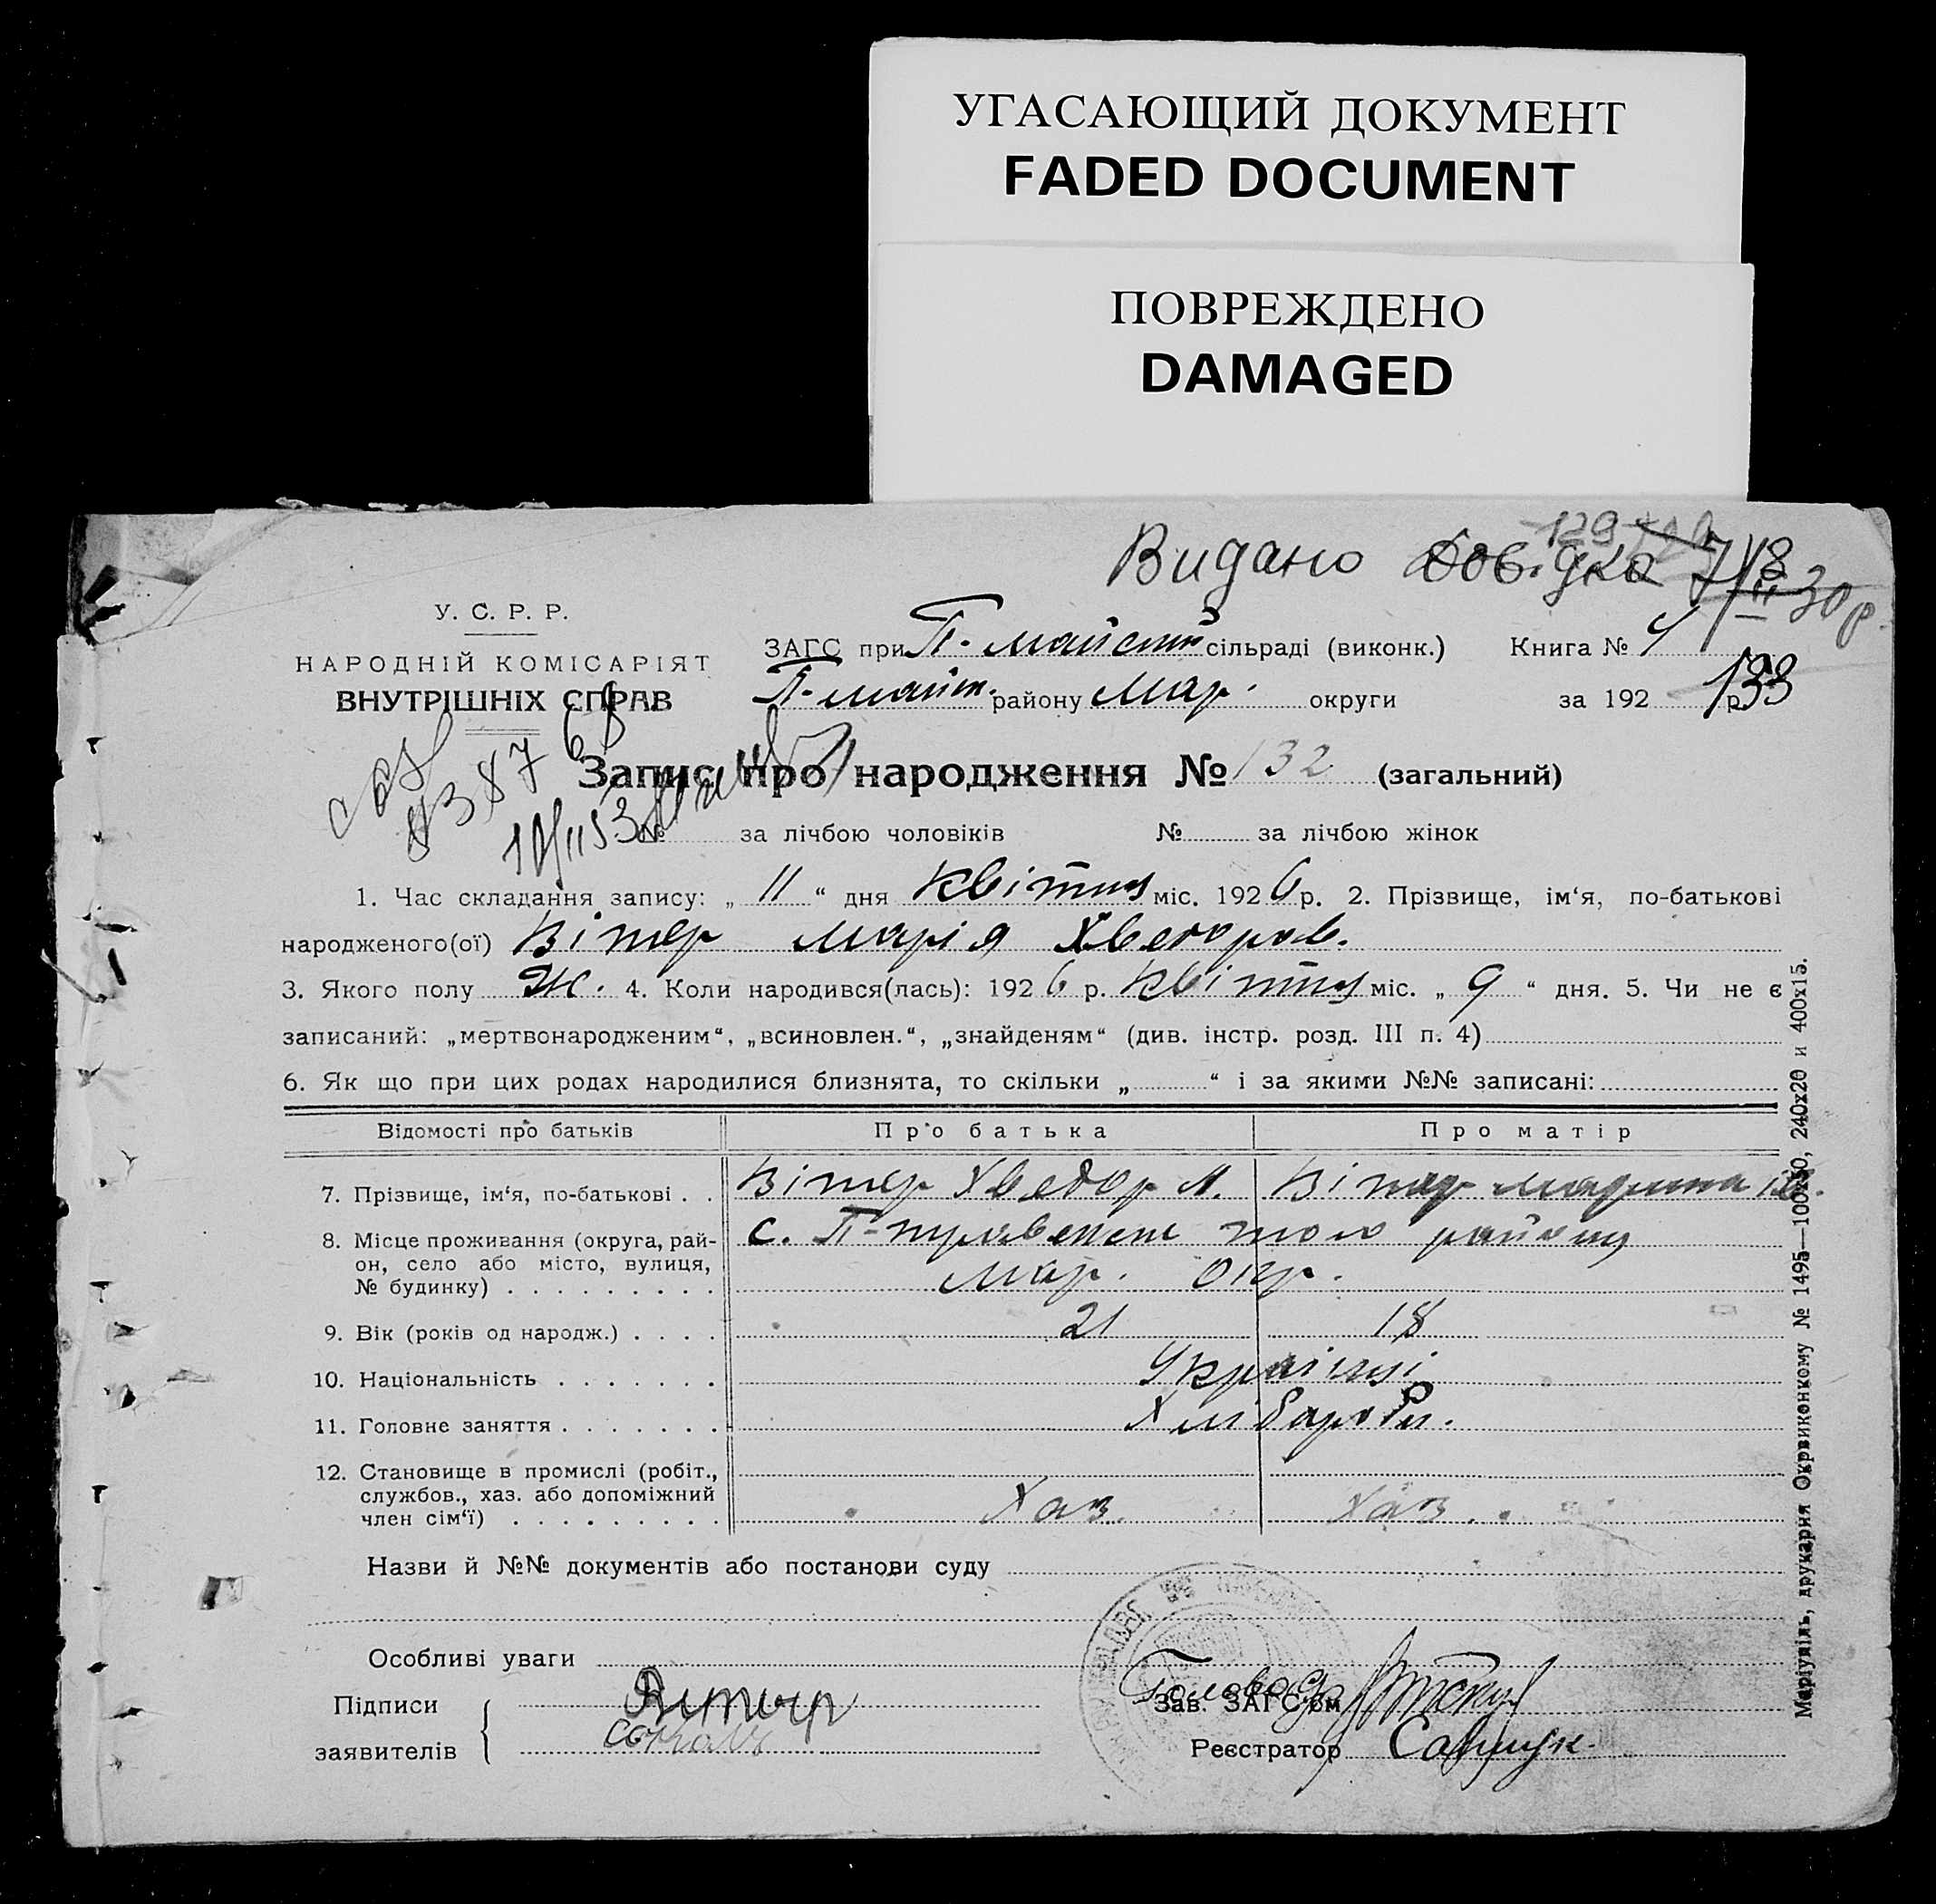 УГАСАЮЩИЙ ДОКУМЕНТ
FADED DOCUMENT
ПОВРЕЖДЕНО
DAMAGED
129
Видано Довідка 7/8 II 30 р.
У. С. Р. Р.
НАРОДНІЙ КОМІСАРІЯТ
ВНУТРІШНІХ СПРАВ
ЗАГС при П-майськ сільраді (виконк.) Книга №
П-майск. району Мар. округи за 192 р.
133
Запис про народження № 132 (загальний)
№ за лічбою чоловіків № за лічбою жінок
1. Час складання запису: „ 11 “ дня квітня міс. 1926 р. 2. Прізвище, ім‘я, по-батькові
народженого(ої) Вітер Марія Хведоров.
3. Якого полу Ж. 4. Коли народився(лась): 1926 р. квітня міс. „ 9 “ дня. 5. Чи не є
записаний: „мертвонародженим“, „всиновлен.“, „знайденям“ (див. інстр. розд. III п. 4)
6. Як що при цих родах народилися близнята, то скільки „ “ і за якими №№ записані:
Відомості про батьків Про батька Про матір
7. Прізвище, ім‘я, по-батькові . . Вітер Хведор Вітер
8. Місце проживання (округа, рай-
он, село або місто, вулиця,
№ будинку) . . . . . . . . .
с. того району
Мар. Окр.
9. Вік (років од народж.) . . . . 21 18
10. Національність . . . . . . . Українці
11. Головне заняття . . . . . . . Хлібароби.
12. Становище в промислі (робіт.,
службов., хаз. або допоміжний
член сім‘ї) . . . . . . . . .
Хаз. Хаз.
Назви й №№ документів або постанови суду
Особливі уваги
Підписи
заявителів
Голова
Зав. ЗАГС‘ом
Реєстратор
Маріупіль, друкарня Окрвиконкому № 1495—100х50, 240х20 и 400х15.